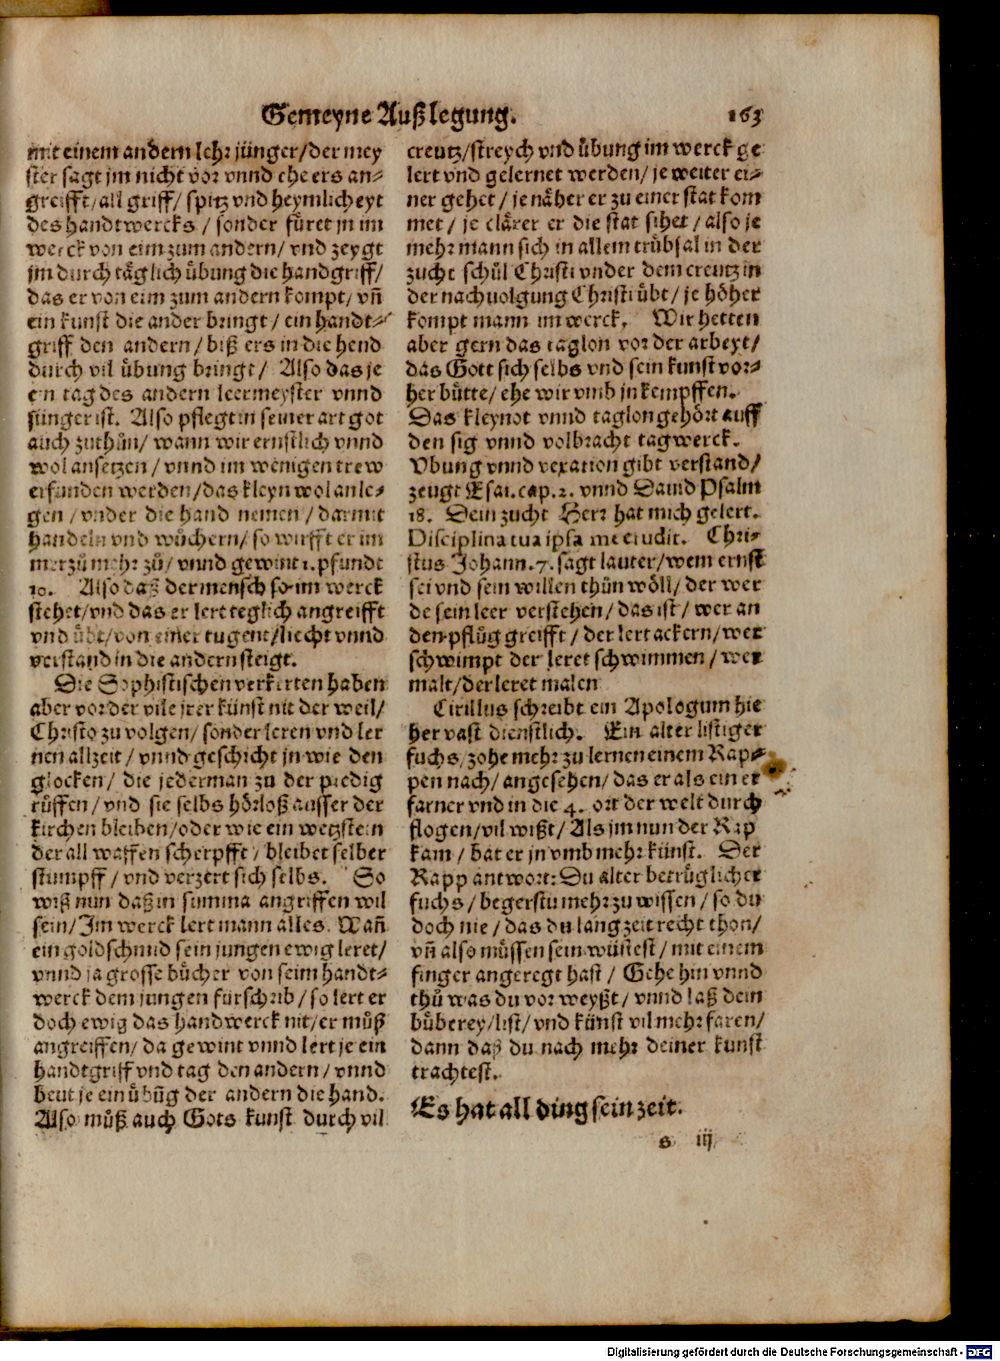 Gemeyne Außlegung. 163
mit einem andern lehr jünger/der mey
ster sagt jm nicht vor vnnd ehe ers an⸗
greifft/all griff/ spitz vnd heymlicheyt
des handtwercks/ sonder füret jn im
werck von eim zum andern/ vnd zeygt
jm durch täglich übung die handgriff/
das er von eim zum andern kompt/ vñ
ein kunst die ander bringt/ ein handt⸗
griff den andern/ biß ers in die hend
durch vil übung bringt/ Also das je
ein tag des andern leermeyster vnnd
jünger ist. Also pflegt in seiner art got
auch zuthůn/ wann wir ernstlich vnnd
wol ansetzen/ vnnd im wenigen trew
erfunden werden/das kleyn wol anle⸗
gen/ vnder die hand nemen/ darmit
handeln vnd wůchern/ so wirfft er im
merzů mehr zů/ vnnd gewint 1. pfundt
10. Also daß der mensch so im werck
stehet/vnd das er lert teglich angreifft
vnd übt/von einer tugent/liecht vnnd
verstand in die andern steigt.
Die Sophistischen verkerten haben
aber vor der vile jrer künst nit der weil/
Christo zu volgen/ sonder leren vnd ler
nen allzeit/ vnnd geschicht jn wie den
glocken/ die jederman zu der predig
růffen/ vnd sie selbs hörloß ausser der
kirchen bleiben/oder wie ein wetzstein
der all waffen scherpfft/ bleibet selber
stumpff/ vnd verzert sich selbs. So
wiß nun daß in summa angriffen wil
sein/Im werck lert mann alles. Wañ
ein goldschmid sein jungen ewig leret/
vnnd ja grosse bůcher von seim handt⸗
werck dem jungen fürschrib/ so lert er
doch ewig das handwerck nit/er můß
angreiffen/ da gewint vnnd lert je ein
handtgriff vnd tag den andern/ vnnd
beut je ein übũg der andern die hand.
Also můß auch Gots kunst durch vil
creutz/streych vnd übung im werck ge
lert vnd gelernet werden/ je weiter ei⸗
ner gehet/ je näher er zu einer stat kom
met/ je clärer er die stat sihet/ also je
mehr mann sich in allem trůbsal in der
zucht schůl Christi vnder dem creutz in
der nachuolgung Christi übt/ je höher
kompt mann im werck. Wir hetten
aber gern das taglon vor der arbeyt/
das Gott sich selbs vnd sein kunst vor⸗
her bütte/ ehe wir vmb jn kempffen.
Das kleynot vnnd taglon gehört auff
den sig vnnd volbracht tagwerck.
Vbung vnnd vexation gibt verstand/
zeugt Esai. cap. 2. vnnd Dauid Psalm
18. Dein zucht Herr hat mich gelert.
Disciplina tua ipsa me erudit. Chri⸗
stus Johann. 7. sagt lauter/wem ernst
sei vnd sein willen thůn wöll/ der wer
de sein leer verstehen/ das ist/ wer an
den pflůg greifft/ der lert ackern/wer
schwimpt der leret schwimmen/ wer
malt/der leret malen
Cirillus schreibt ein Apologum hie
her vast dienstlich. Ein alter listiger
fuchs/ zohe mehr zu lernen einem Rap⸗
pen nach/ angesehen/ das er als ein er
farner vnd in die 4. ort der welt durch
flogen/vil wißt/ Als jm nun der Rap
kam/ bat er jn vmb mehr künst. Der
Rapp antwort: Du alter betrüglicher
fuchs/ begerstu mehr zu wissen/ so du
doch nie/ das du lang zeit recht thon/
vñ also müssen sein wüstest/ mit einem
finger angeregt hast/ Gehe hin vnnd
thů was du vor weyßt/ vnnd laß dein
bůberey/list/ vnd künst vil mehr faren/
dann daß du nach mehr deiner kunst
trachtest.
Es hat all ding sein zeit.
s iij
Digitalisierung gefördert durch die Deutsche Forschungsgemeinschaft - DFG